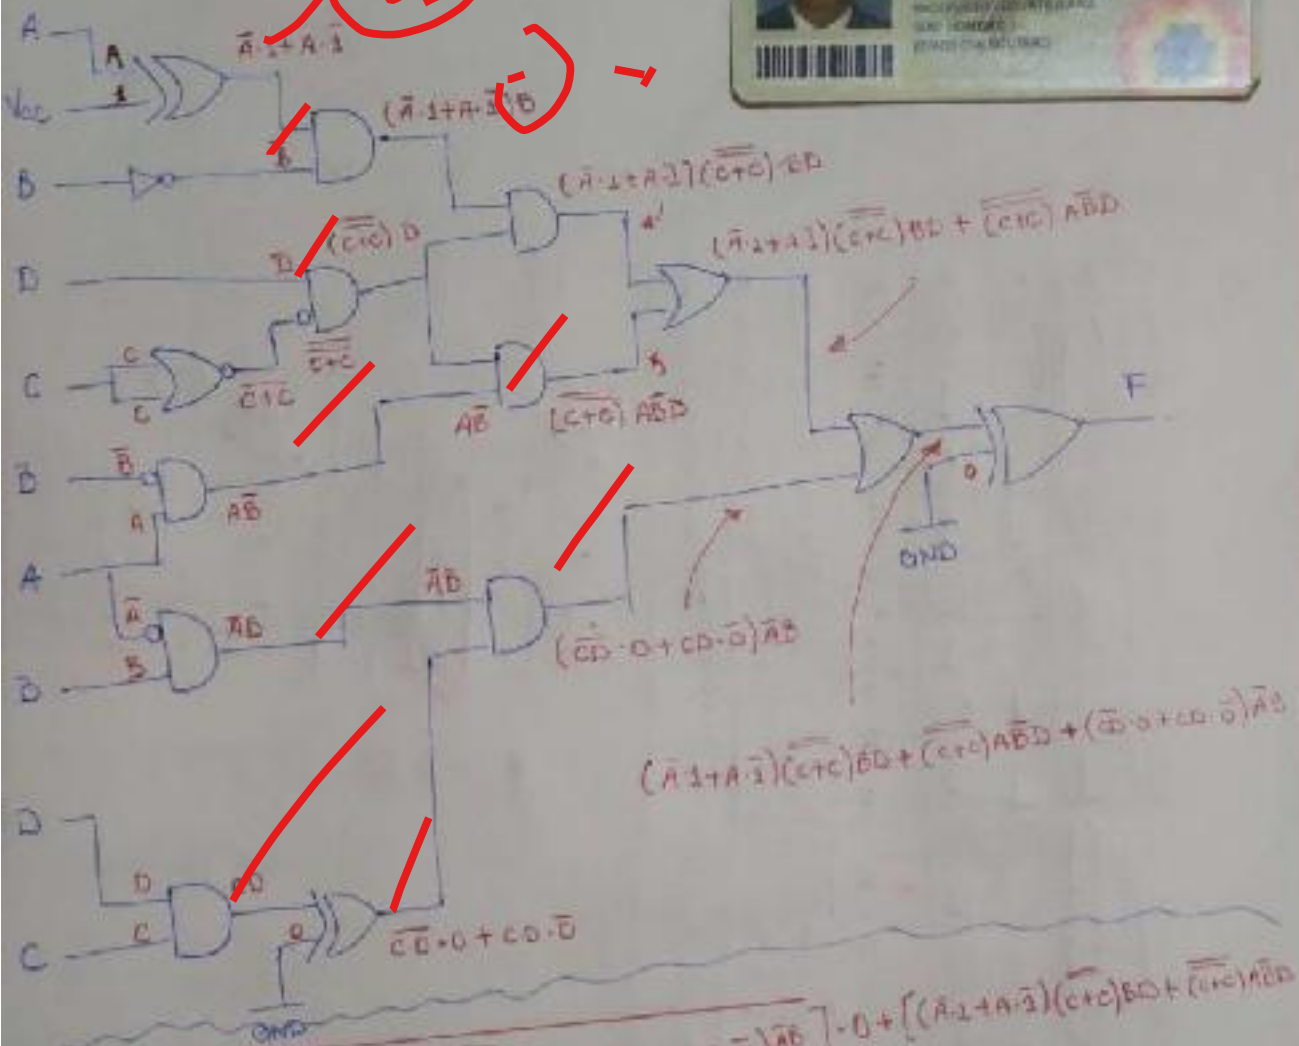 A
A
Ā·1+A·1̄
Vcc
1
(Ā·1+A·1̄)B
B
B̄
(Ā·1+A·1̄)(C̿+̿C̿)·B̄D
(C̿+̿C̿)D
D
D
(Ā·1+A·1̄)(C̿+̿C̿)B̄D + (C̿+̿C̿)AB̄D
C
C
C
C̅+̅C̅
C̿+̿C̿
AB̄
(C̿+̿C̿)AB̄D
F
B
B̄
A
AB̄
0
GND
A
Ā
ĀB
ĀB
B
B
(C̅D̅·0+CD·0̄)ĀB
(Ā·1+A·1̄)(C̿+̿C̿)B̄D+(C̿+̿C̿)AB̄D+(C̅D̅·0+CD·0̄)ĀB
D
D
CD
C
C
0
C̅D̅·0+CD·0̄
GND
ĀB]·0+[(Ā·1+A·1̄)(C̿+̿C̿)B̄D+(C̿+̿C̿)AB̄D